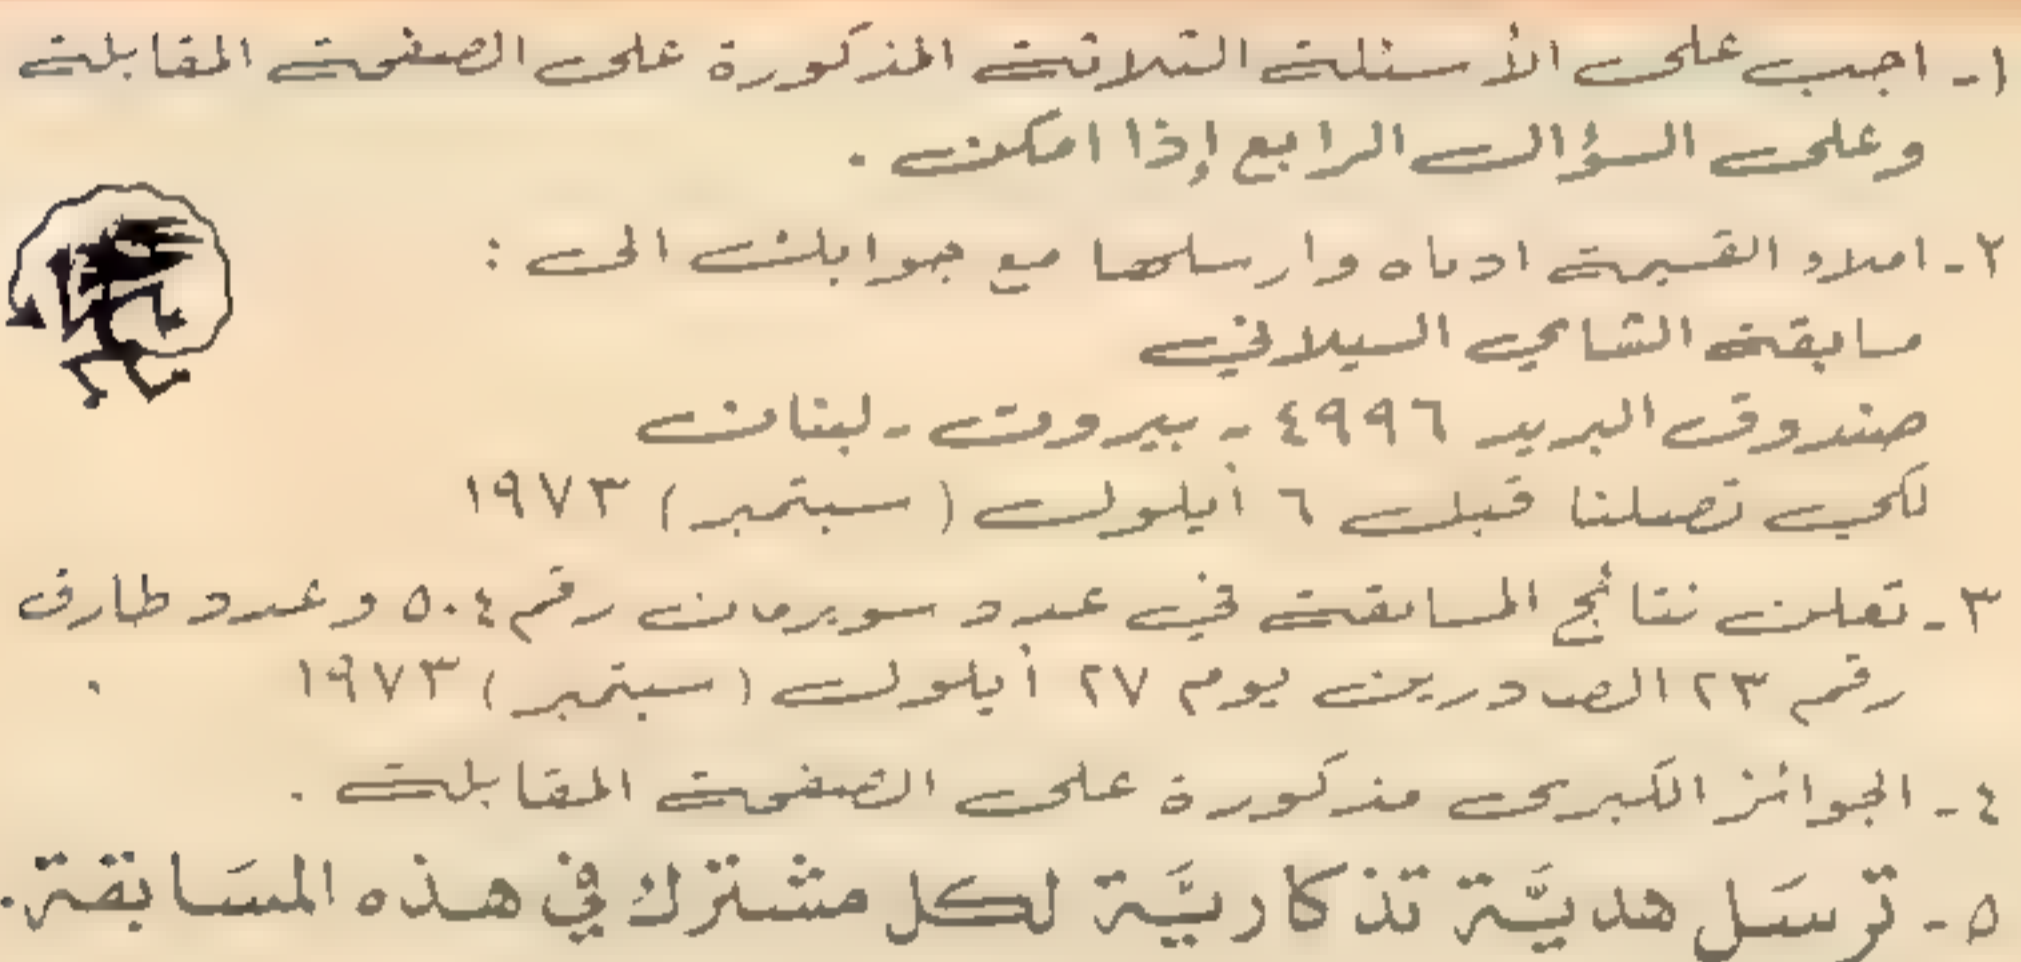 ١- اجب على الأسئلة الثلاثة المذكورة على الصفحة المقابلة
وعلى السؤال الرابع إذا امكن .
٢- املاء القسيمة ادناه وارسلها مع جوابك الى :
مسابقة الشاي السيلاني
صندوق البريد ٤٩٩٦ - بيروت - لبنان
لكي تصلنا قبل ٦ أيلول ( سبتمبر ) ١٩٧٣
٣- تعلن نتائج المسابقة في عدد سوبرمان رقم ٥٠٤ وعدد طارق
رقم ٢٣ الصادرين يوم ٢٧ أيلول ( سبتمبر ) ١٩٧٣
٤- الجوائز الكبرى مذكورة على الصفحة المقابلة .
٥- ترسَل هديَّة تذكاريَّة لكل مشترك في هذه المسَابقة .